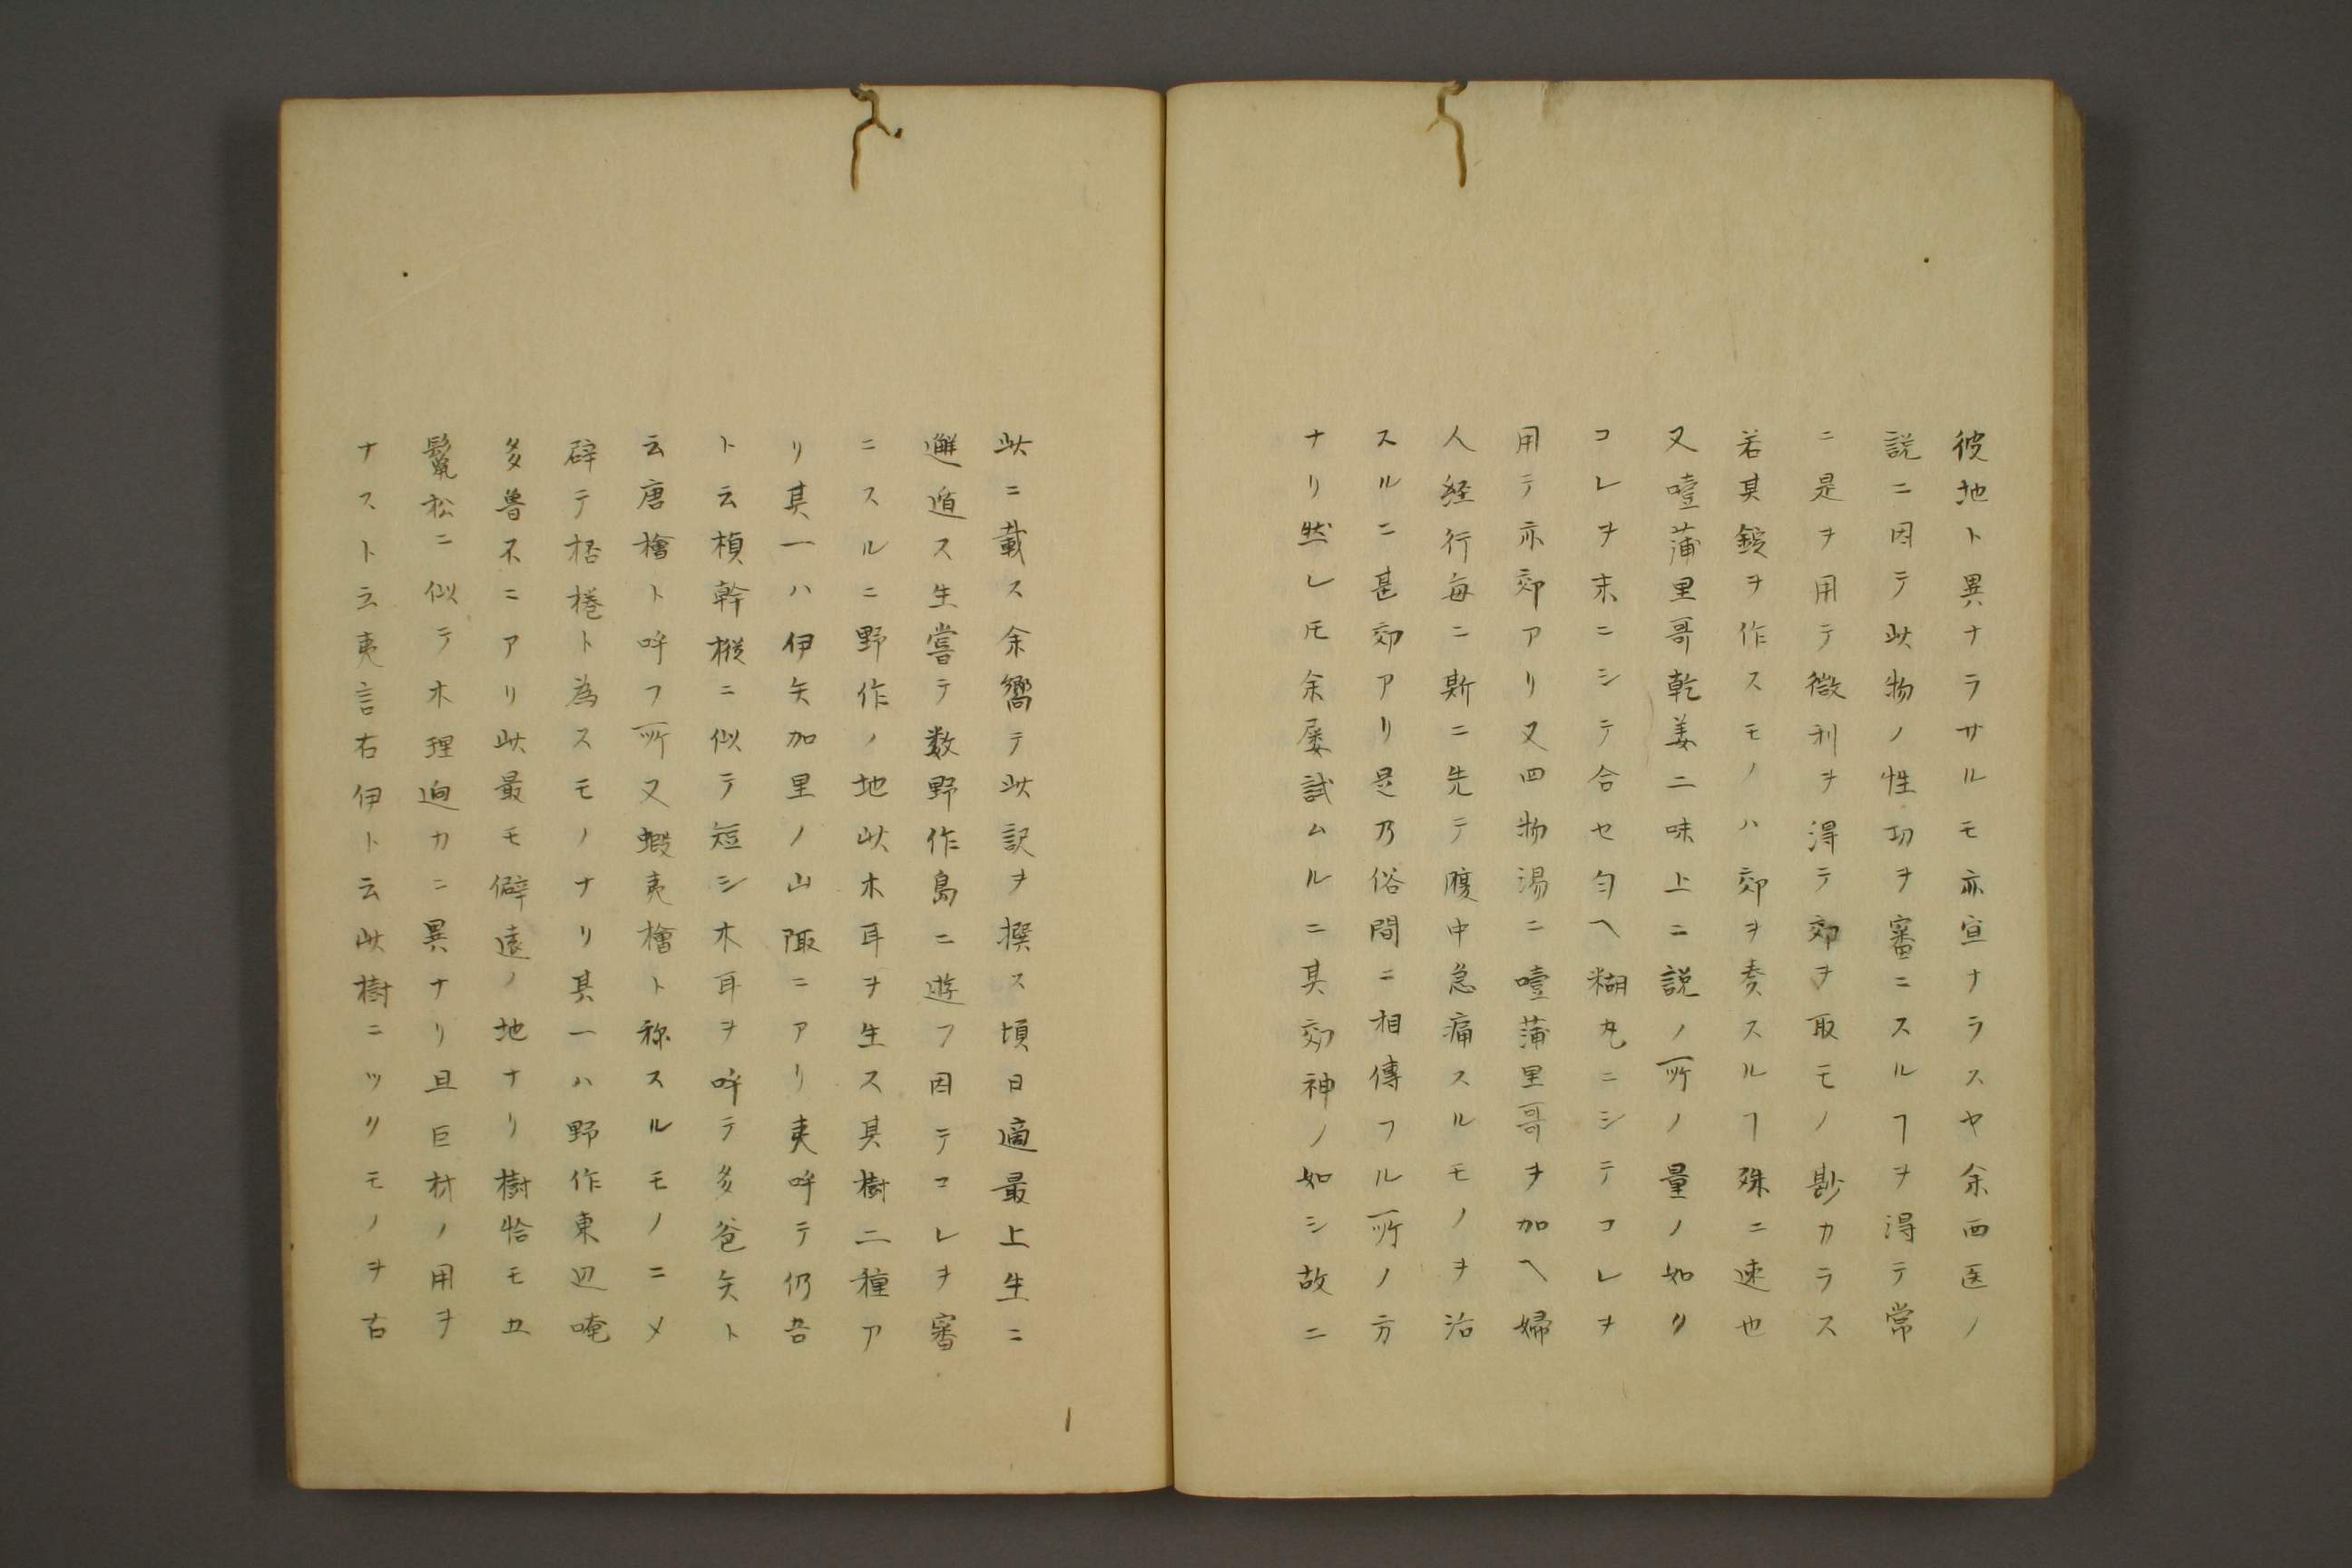 彼地ト異ナラサルモ亦宣ナラスヤ余西医ノ
説ニ因テ此物ノ性功ヲ審ニスルヿヲ得テ常
ニ是ヲ用テ微利ヲ得テ効ヲ取モノ尠カラス
若其錠ヲ作スモノハ効ヲ奏スルヿ殊ニ速也
又噎蒲里哥乾姜二味上ニ説ノ所ノ量ノ如リ
コレヲ末ニシテ合セ匀ヘ糊丸ニシテコレヲ
用テ亦効アリ又四物湯ニ噎蒲里哥ヲ加ヘ婦
人経行毎ニ斯ニ先テ腹中急痛スルモノヲ治
スルニ甚効アリ是乃俗間ニ相傳フル所ノ方
ナリ然レ𪜈余屡試ムルニ其効神ノ如シ故ニ
此ニ載ス余嚮テ此記ヲ撰ス頃日適最上生ニ
邂遁ス生嘗テ数野作島ニ遊フ因テコレヲ審
ニスルニ野作ノ地此木耳ヲ生ス其樹二種ア
リ其一ハ伊矢加里ノ山陬ニアリ夷呼テ仍吾
ト云楨幹樅ニ似テ短シ木耳ヲ呼テ多爸矢ト
云唐檜ト呼フ所又蝦夷檜ト称スルモノニメ
礕テ桮棬ト為スモノナリ其一ハ野作東辺唵
多魯不ニアリ此最モ僻遠ノ地ナリ樹恰モ五
鬣松ニ似テ木理迥カニ異ナリ且巨材ノ用ヲ
ナスト云夷言右伊ト云此樹ニツリモノヲ右